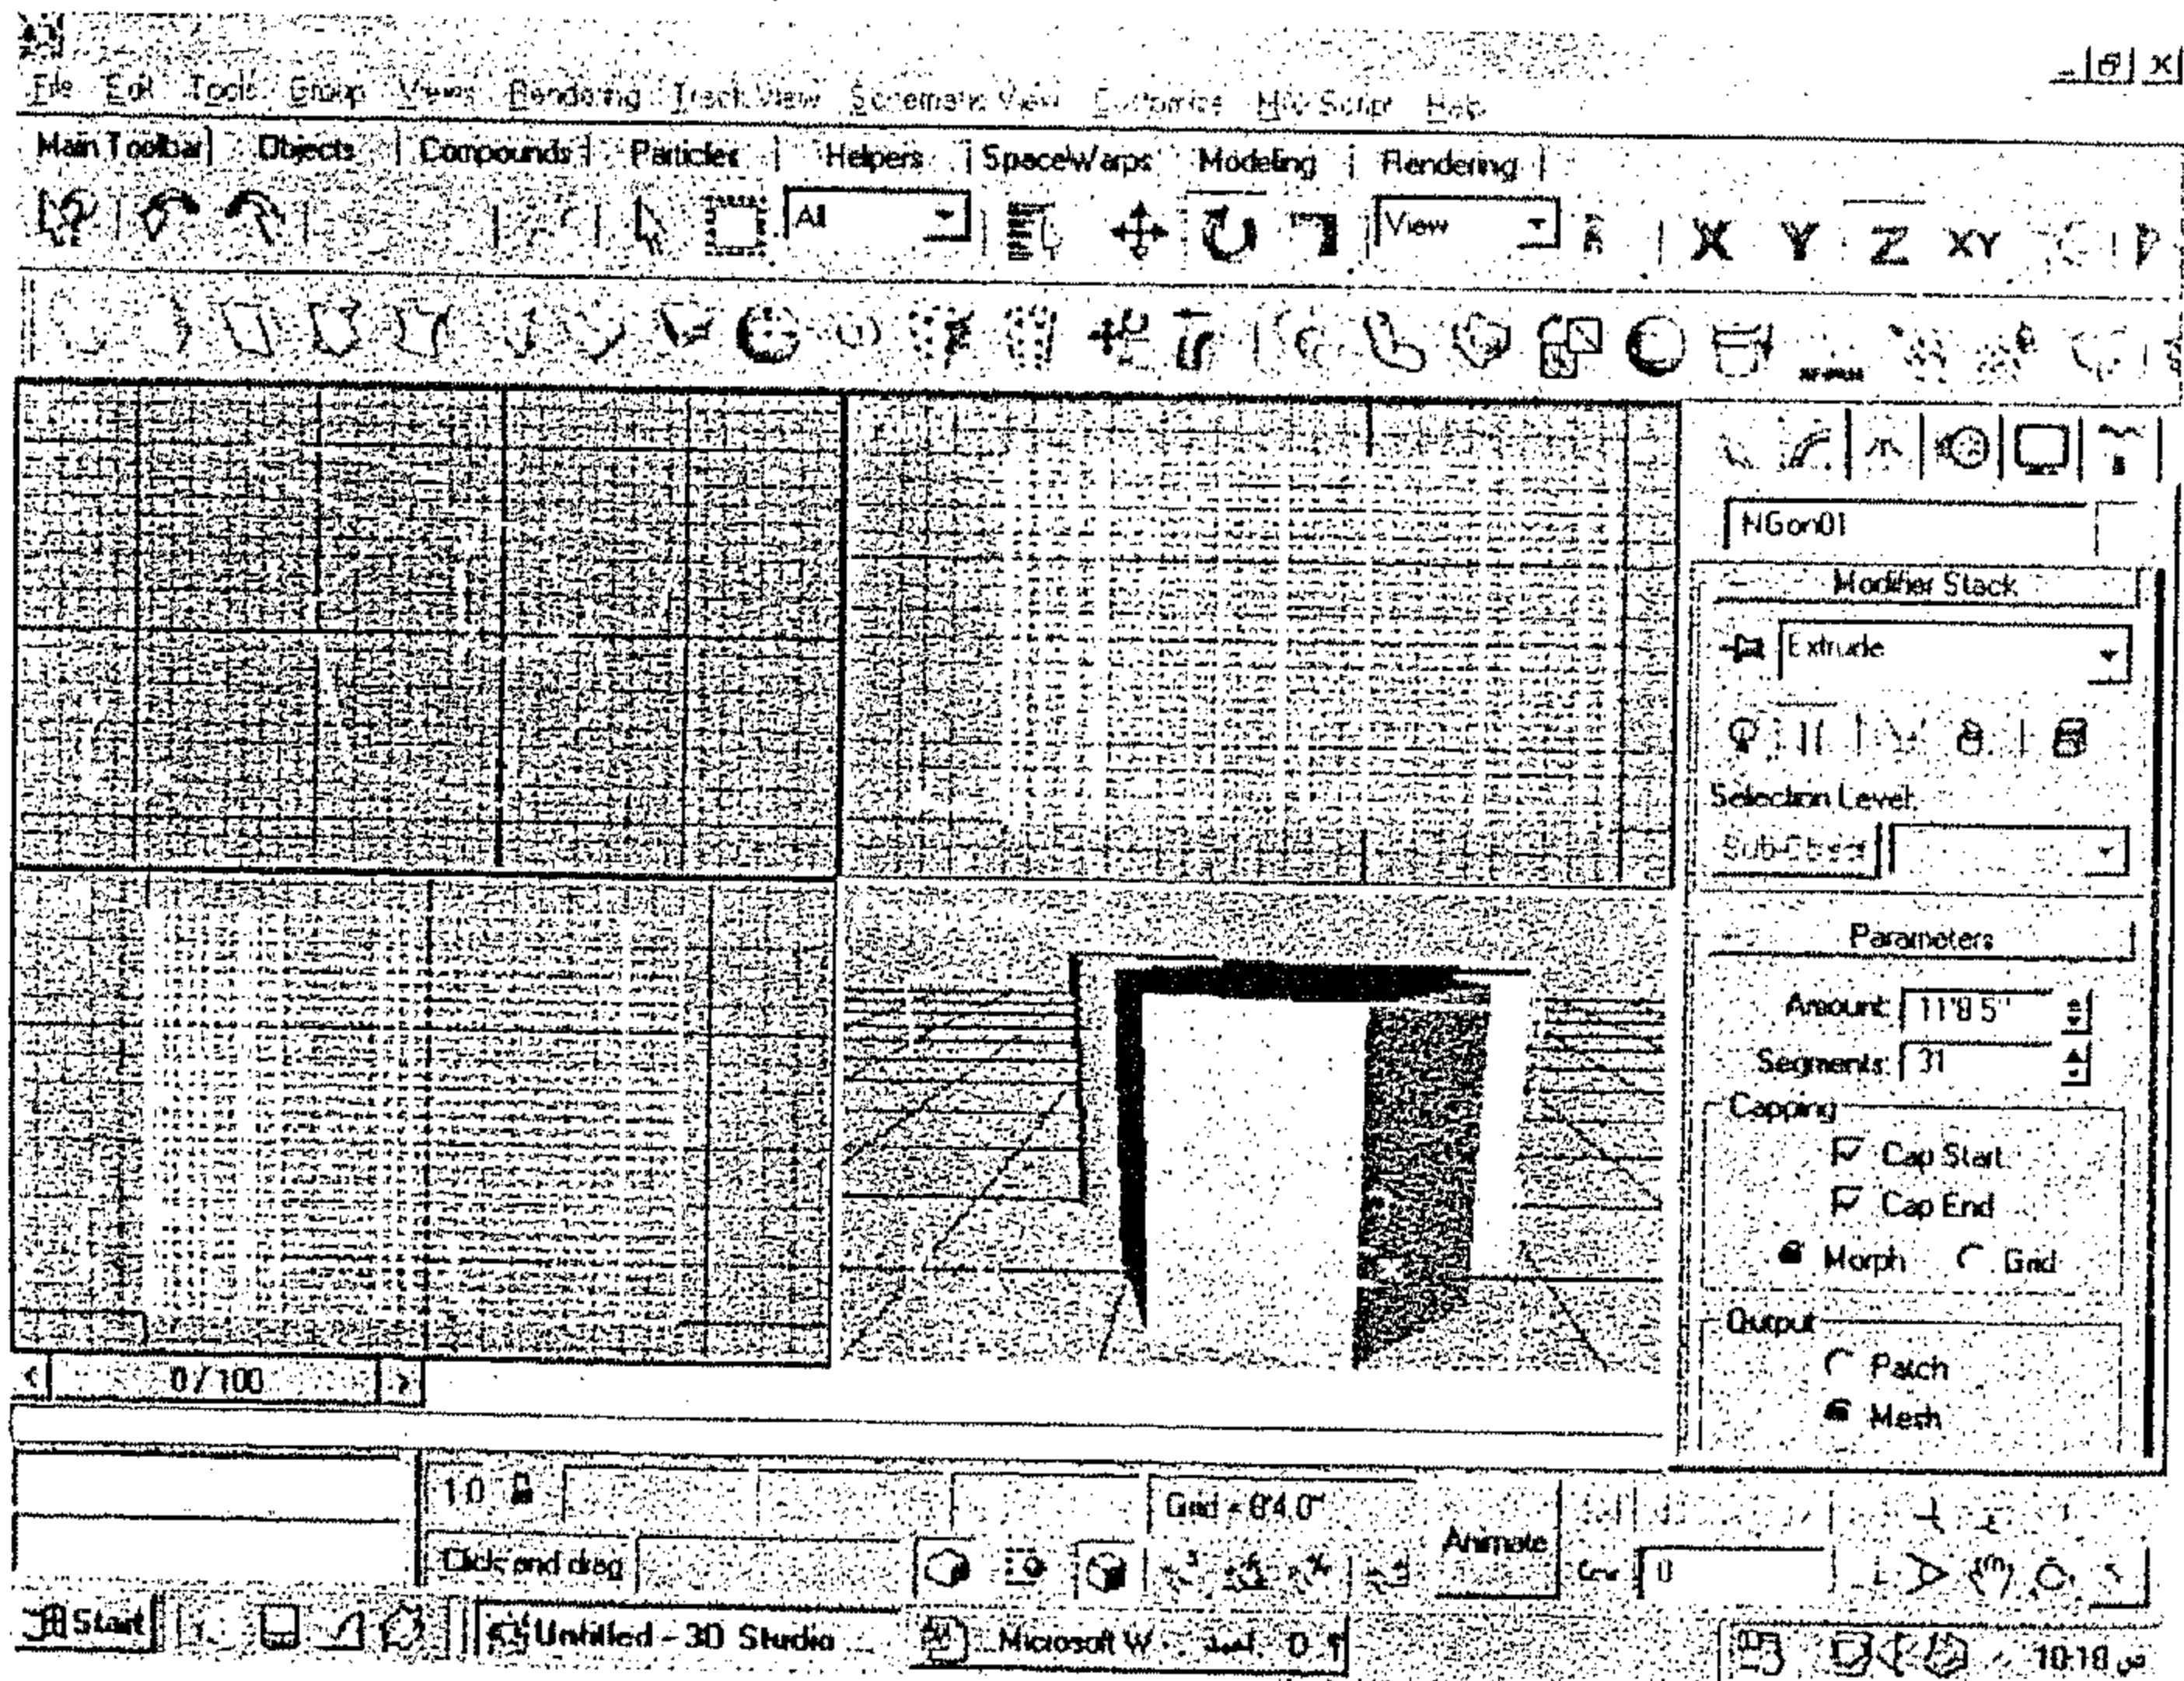 File Edit Tools Group Views Rendering Track View Schematic View Customize Help
Main Toolbar Objects Compounds Particles Helpers SpaceWarps Modeling Rendering
All View X Y Z XY
NGon01
Modifier Stack
Extrude
Selection Level:
Sub-Object
Parameters
Amount: 11'8.5"
Segments: 31
Capping
Cap Start
Cap End
Morph Grid
Output
Patch
Mesh
0 / 100
1.0 Grid = 0'4.0"
Click and drag Animate 0
Start Untitled - 3D Studio ... Microsoft W 10:18 ص